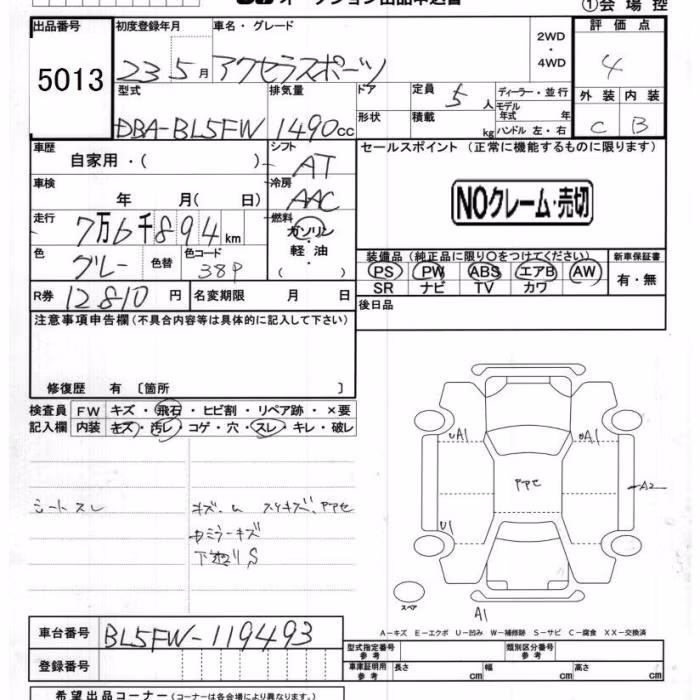 オークション出品申込書
①会場控
出品番号 初度登録年月 車名・グレード 2WD・4WD 評価点
5013 23 5月 アクセラスポーツ 4
型式 排気量 ドア 定員 5人 ディーラー・並行 外装 内装
DBA-BL5FW 1490cc 形状 積載 kg モデル年式 年 ハンドル 左・右 C B
車歴 自家用・( ) シフト AT セールスポイント (正常に機能するものに限ります)
車検 年 月( 日) 冷房 AAC
NOクレーム・売切
走行 7万6千894km 燃料 ガソリン・軽油・( )
色 グレー 色替 色コード 38P
装備品 (純正品に限り○をつけてください) 新車保証書
PS PW ABS エアB AW 有・無
SR ナビ TV カワ
R券 12810円 名変期限 月 日 後日品
注意事項申告欄 (不具合内容等は具体的に記入して下さい)
修復歴 有 〔箇所 〕
検査員 FW キズ・飛石・ヒビ割・リペア跡・×要
記入欄 内装 キズ・汚レ・コゲ・穴・スレ・キレ・破レ
シートスレ
カミラーキズ
S
UA1
A1
アアセ
A2
U1
スペア
A1
A-キズ E-エクボ U-凹み W-補修跡 S-サビ C-腐食 XX-交換済
車台番号 BL5FW-119493
型式指定番号 参考 類別区分番号 参考
登録番号
車庫証明用 参考 長さ cm 幅 cm 高さ cm
希望出品コーナー (コーナーは各会場により異なります。)